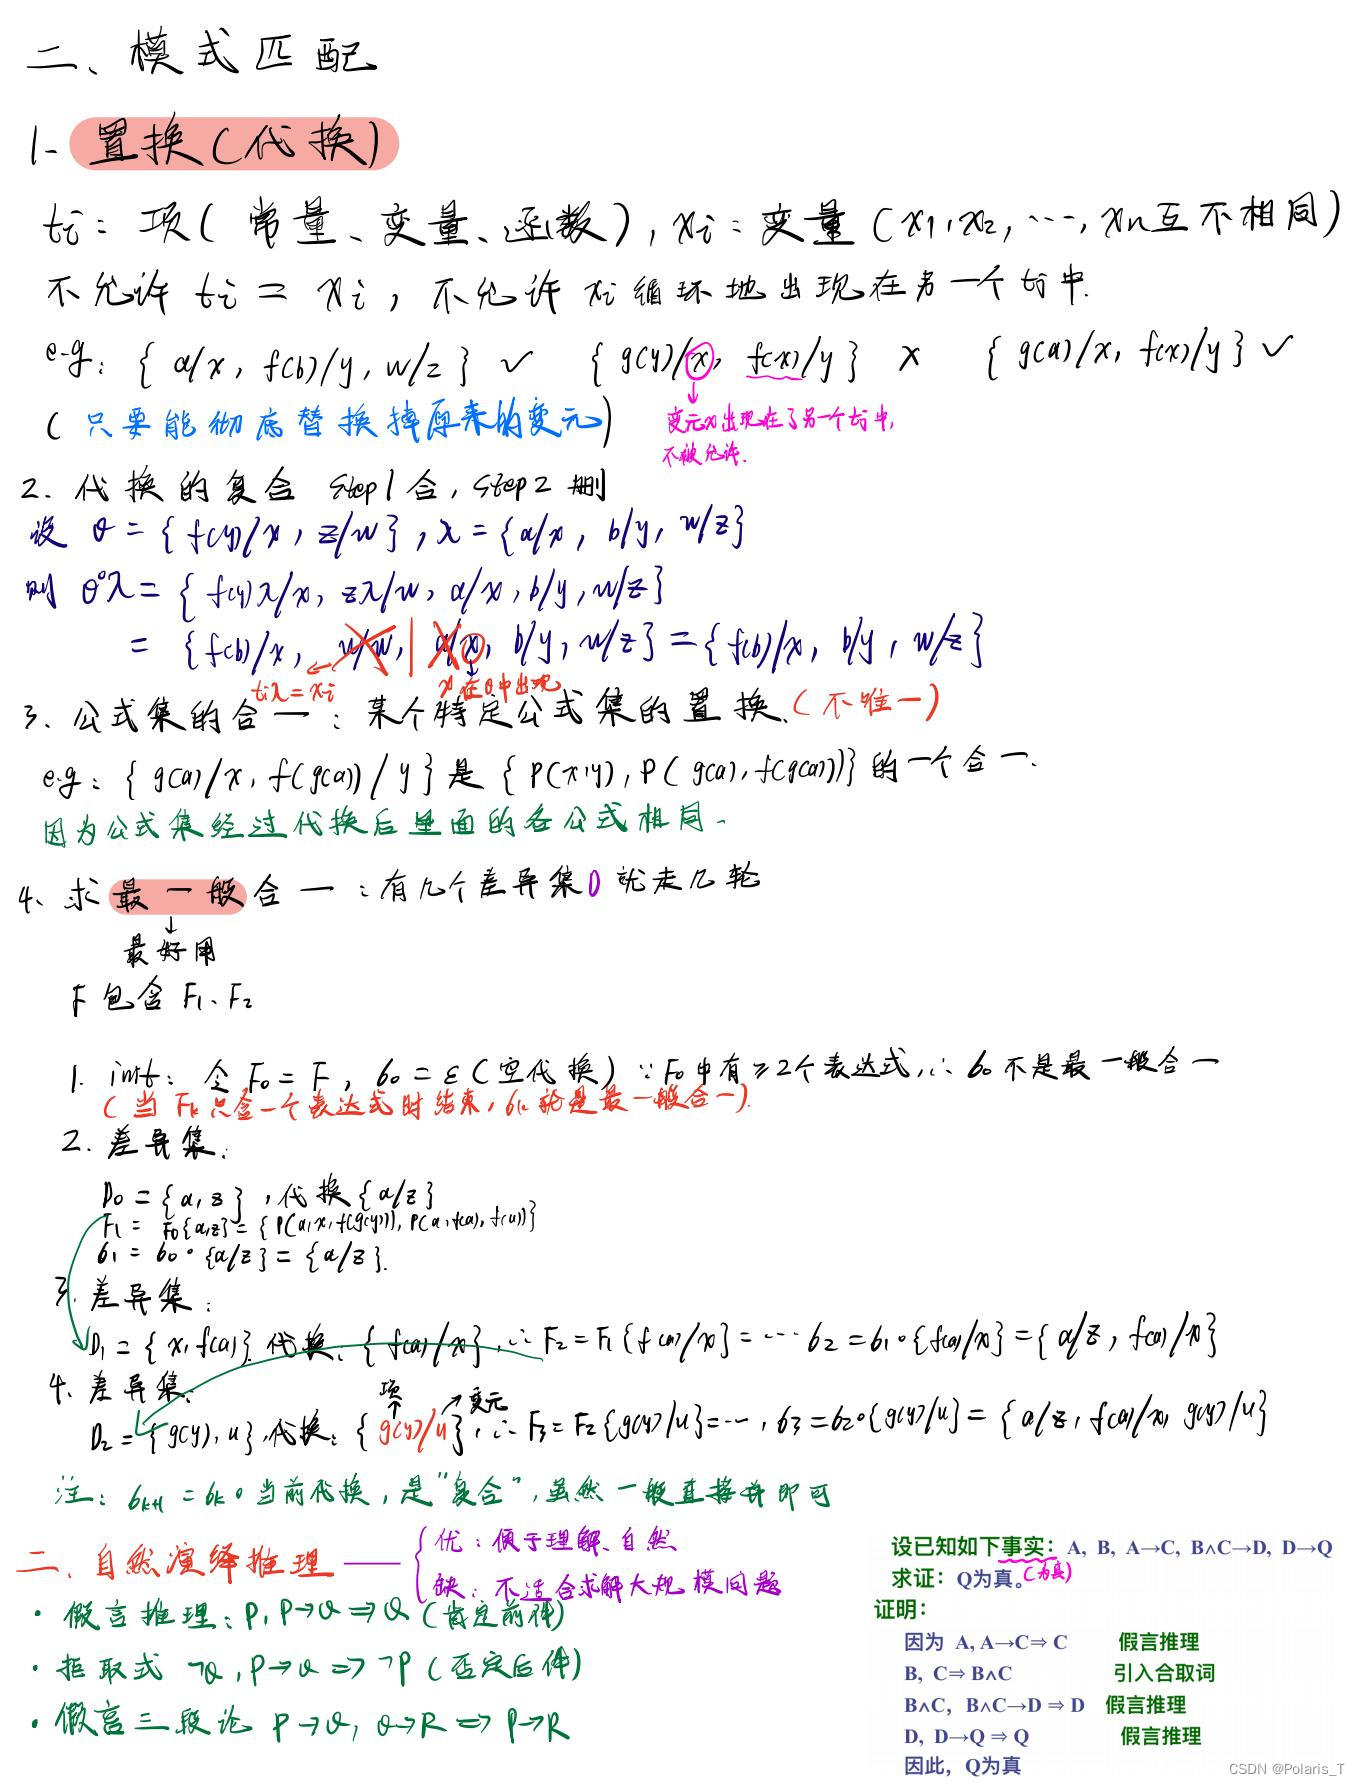 二、模式匹配
1. 置换(代换)
ti：项(常量、变量、函数), xi：变量(x1,x2,…,xn互不相同)
不允许 ti = xi, 不允许 xi 循环地出现在另一个 tj 中.
e.g: {a/x, f(b)/y, w/z} ✓ {g(y)/x, f(x)/y} × {g(a)/x, f(x)/y} ✓
(只要能彻底替换掉原来的变元)
变元x出现在了另一个tj中,
不被允许.
2. 代换的复合 Step1 合, Step2 删
设 θ = {f(y)/x, z/w}, λ = {a/x, b/y, w/z}
则 θ°λ = {f(y)λ/x, zλ/w, a/x, b/y, w/z}
= {f(b)/x, w/w, | a/x, b/y, w/z} = {f(b)/x, b/y, w/z}
tiλ=xi
x在θ中出现
3. 公式集的合一：某个特定公式集的置换.(不唯一)
e.g: {g(a)/x, f(g(a))/y} 是 {P(x,y), P(g(a), f(g(a)))} 的一个合一.
因为公式集经过代换后里面的各公式相同.
4. 求最一般合一：有几个差异集D 就走几轮
↓
最好用
F 包含 F1、F2
1. init: 令 F0 = F, б0 = ε(空代换) ∵ F0中有≥2个表达式,∴ б0 不是最一般合一
(当 Fk 只含一个表达式时结束, бk 就是最一般合一).
2. 差异集:
D0 = {a, z}, 代换{a/z}
F1 = F0{a,z} = {P(a,x,f(g(y))), P(a,f(a),f(u))}
б1 = б0∘{a/z} = {a/z}.
3. 差异集:
D1 = {x, f(a)}. 代换: {f(a)/x}, ∴ F2 = F1{f(a)/x} = … б2 = б1∘{f(a)/x} = {a/z, f(a)/x}
4. 差异集:
项 ↗变元
D2 = {g(y), u}, 代换: {g(y)/u}, ∴ F3 = F2{g(y)/u} = …, б3 = б2∘{g(y)/u} = {a/z, f(a)/x, g(y)/u}
注: бk+1 = бk∘当前代换, 是"复合", 虽然一般直接并即可
二、自然演绎推理
优：便于理解、自然
缺：不适合求解大规模问题
• 假言推理: P, P→Q ⇒ Q (肯定前件)
• 拒取式 ¬Q, P→Q ⇒ ¬P (否定后件)
• 假言三段论 P→Q, Q→R ⇒ P→R
设已知如下事实：A, B, A→C, B∧C→D, D→Q
(为真)
求证：Q为真。
证明：
因为 A, A→C⇒ C 假言推理
B, C⇒ B∧C 引入合取词
B∧C, B∧C→D ⇒ D 假言推理
D, D→Q ⇒ Q 假言推理
因此，Q为真
CSDN @Polaris_T